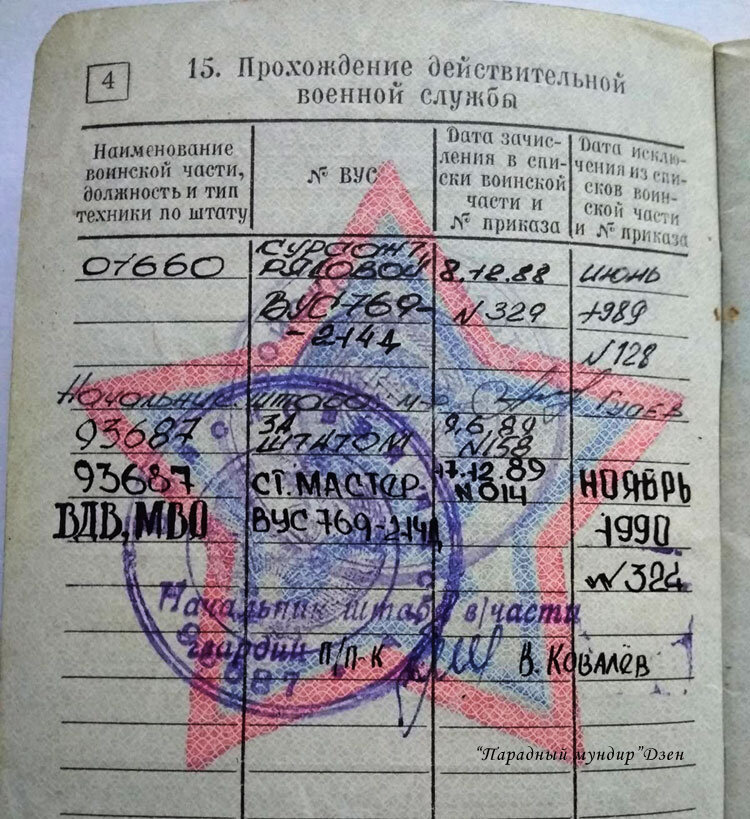 4
15. Прохождение действительной
военной службы
Наименование
воинской части,
должность и тип
техники по штату
№ ВУС
Дата зачис-
ления в спи-
ски воинской
части и
№ приказа
Дата исклю-
чения из спи-
сков воин-
ской части
и № приказа
01660
РЯДОВОЙ
8.12.88
ИЮНЬ
ВУС 769-
N 329
1989
-214Д
N 128
Начальник штаба
93687
ЗА
ШТАТОМ
9.6.89
N158
93687
СТ. МАСТЕР
17.12.89
N 014
НОЯБРЬ
ВДВ, МВО
ВУС 769-214Д
1990
N 324
Начальник штаба в/части
гвардии П/П-К
В. КОВАЛЁВ
"Парадный мундир" Дзен